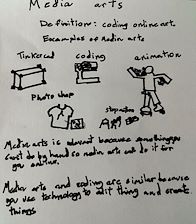 Media arts
Definition: coding online art
Examples of Media arts
Tinkercad coding animation
Photo shop
stop motion
Media arts is relevant because some things
cant be by hand so media arts can do it for
you online.
Media arts and coding are similar because
you use technology to edit thing and create
things